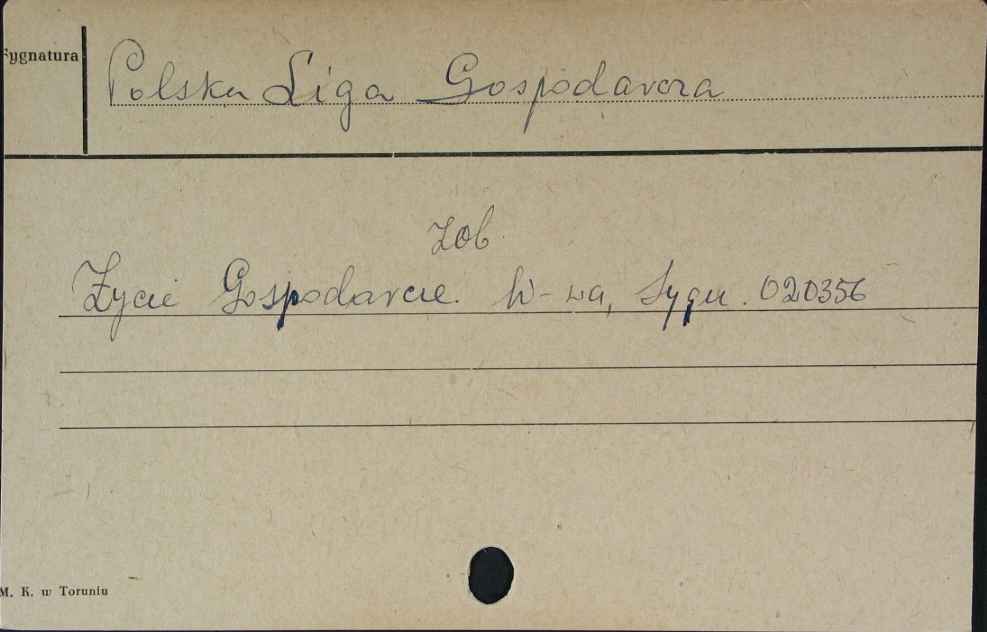 Sygnatura
Polska Liga Gospodarcza
zob.
Życie Gospodarcze. W-wa, Sygn. 020356
M. K. w Toruniu